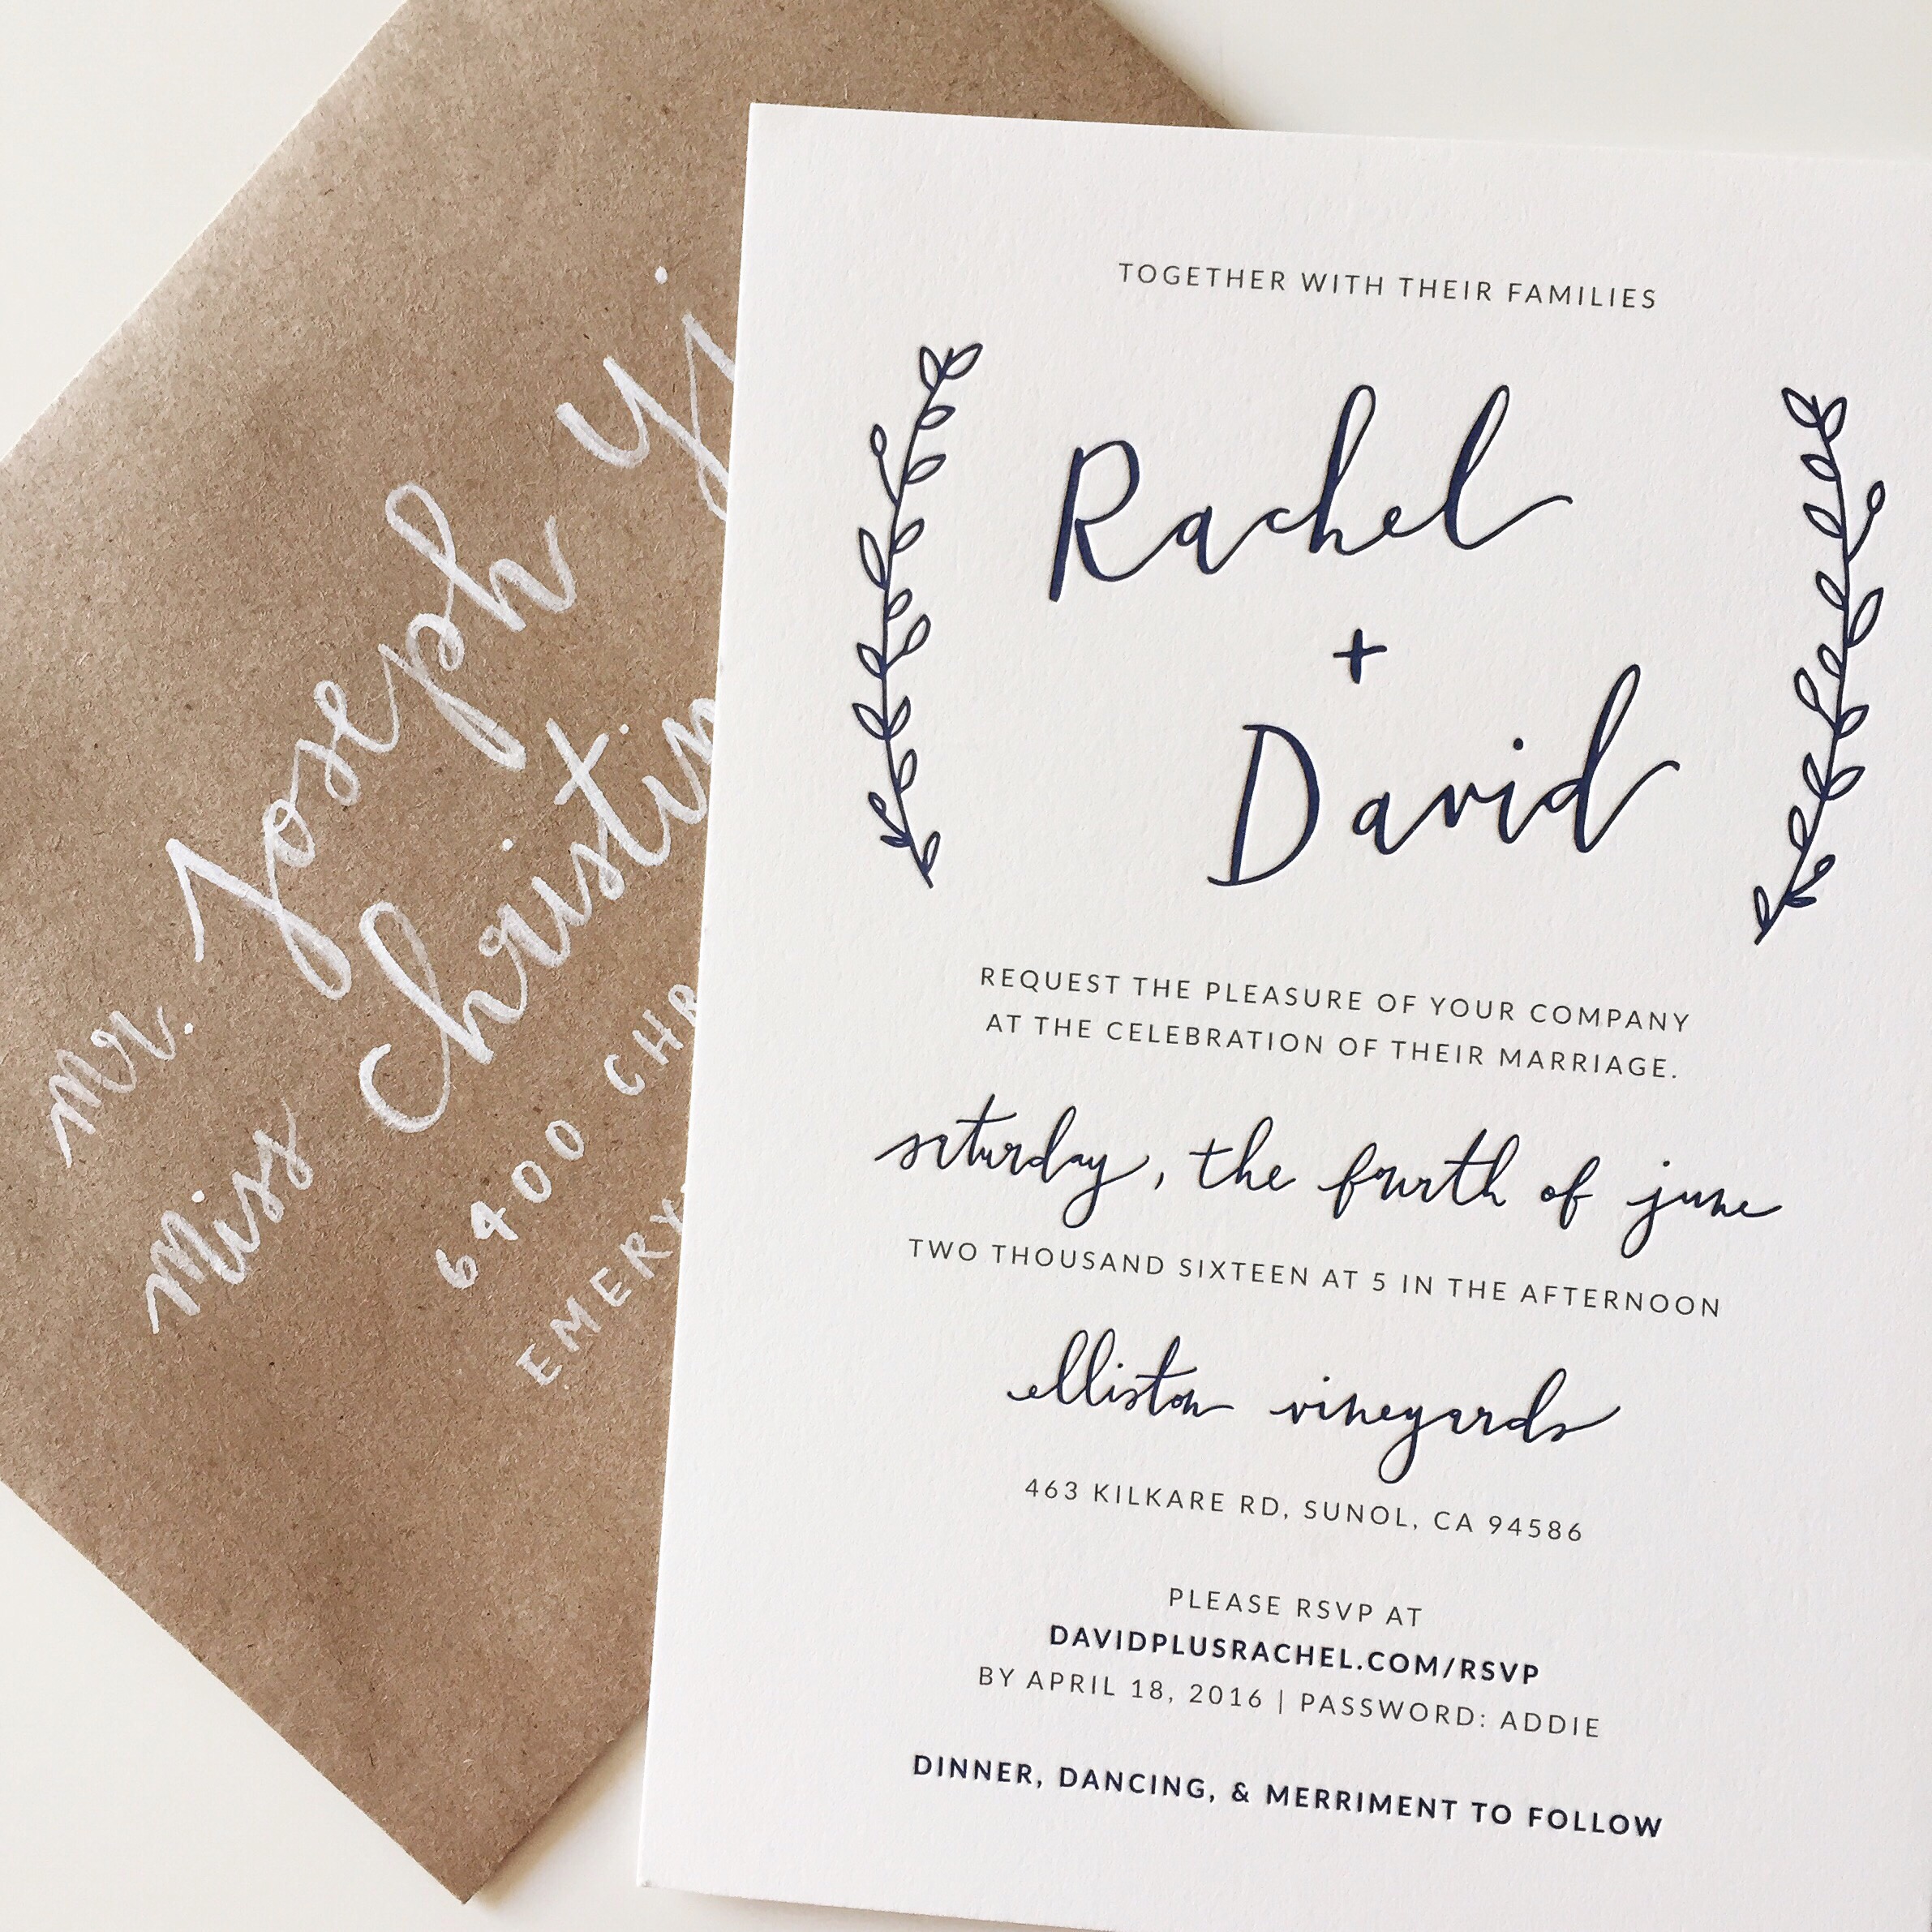 mr. Joseph
Miss
6400
TOGETHER WITH THEIR FAMILIES
Rachel
+
David
REQUEST THE PLEASURE OF YOUR COMPANY
AT THE CELEBRATION OF THEIR MARRIAGE.
saturday, the fourth of june
TWO THOUSAND SIXTEEN AT 5 IN THE AFTERNOON
elliston vineyards
463 KILKARE RD, SUNOL, CA 94586
PLEASE RSVP AT
DAVIDPLUSRACHEL.COM/RSVP
BY APRIL 18, 2016 | PASSWORD: ADDIE
DINNER, DANCING, & MERRIMENT TO FOLLOW